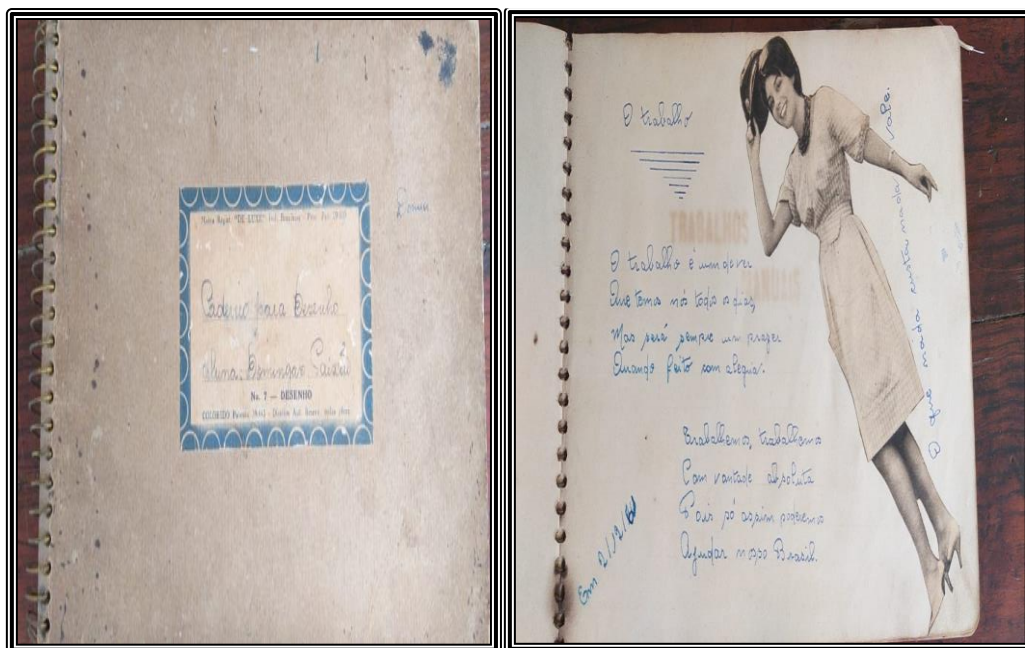 Marca Regist. "DE LUXE" Ind. Brasileira
Caderno para Desenho
Aluna: Domingas Paixão
No. 7 — DESENHO
COLORIDO Patente
O trabalho
TRABALHOS
MANUAIS
O trabalho é um dever
Que temos nós todo o dia,
Mas será sempre um prazer
Quando feito com alegria.
Trabalhemos, trabalhemos
Com vontade absoluta
Pois só assim poderemos
Ajudar nosso Brasil.
O que nada custou nada vale.